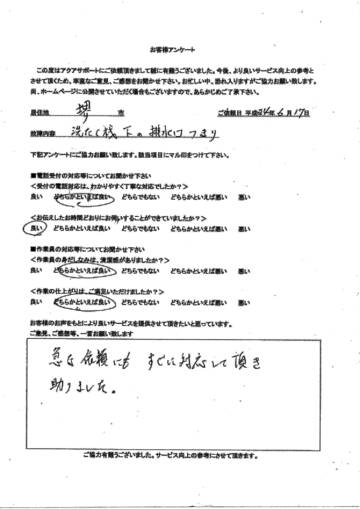 お客様アンケート
この度はアクアサポートにご依頼頂きまして誠に有難うございました。今後、より良いサービス向上の参考と
させて頂くため、率直なご意見、ご感想をお聞かせ下さい。お忙しい中、恐れ入りますがご協力お願い致します。
尚、ホームページに公開させていただく場合もございますので、あらかじめご了承下さい。
居住地 堺 市 ご依頼日 平成24年6月17日
故障内容 洗たく機下の排水口つまり
下記アンケートにご協力お願い致します。該当項目にマル印をつけて下さい。
■電話受付の対応等についてお聞かせ下さい
<受付の電話対応は、わかりやすく丁寧な対応でしたか?>
良い どちらかといえば良い どちらでもない どちらかといえば悪い 悪い
<お伝えしたお時間どおりにお伺いすることができていましたか?>
良い どちらかといえば良い どちらでもない どちらかといえば悪い 悪い
■作業員の対応等についてお聞かせ下さい
<作業員の身だしなみは、清潔感がありましたか?>
良い どちらかといえば良い どちらでもない どちらかといえば悪い 悪い
<作業の仕上がりは、ご満足いただけましたか?>
良い どちらかといえば良い どちらでもない どちらかといえば悪い 悪い
お客様のお声をもとにより良いサービスを提供させて頂きたいと思っています。
ご意見、ご感想等、一言お願い致します
急な依頼にも すぐに対応して頂き
助りました。
ご協力有難うございました。サービス向上の参考にさせて頂きます。